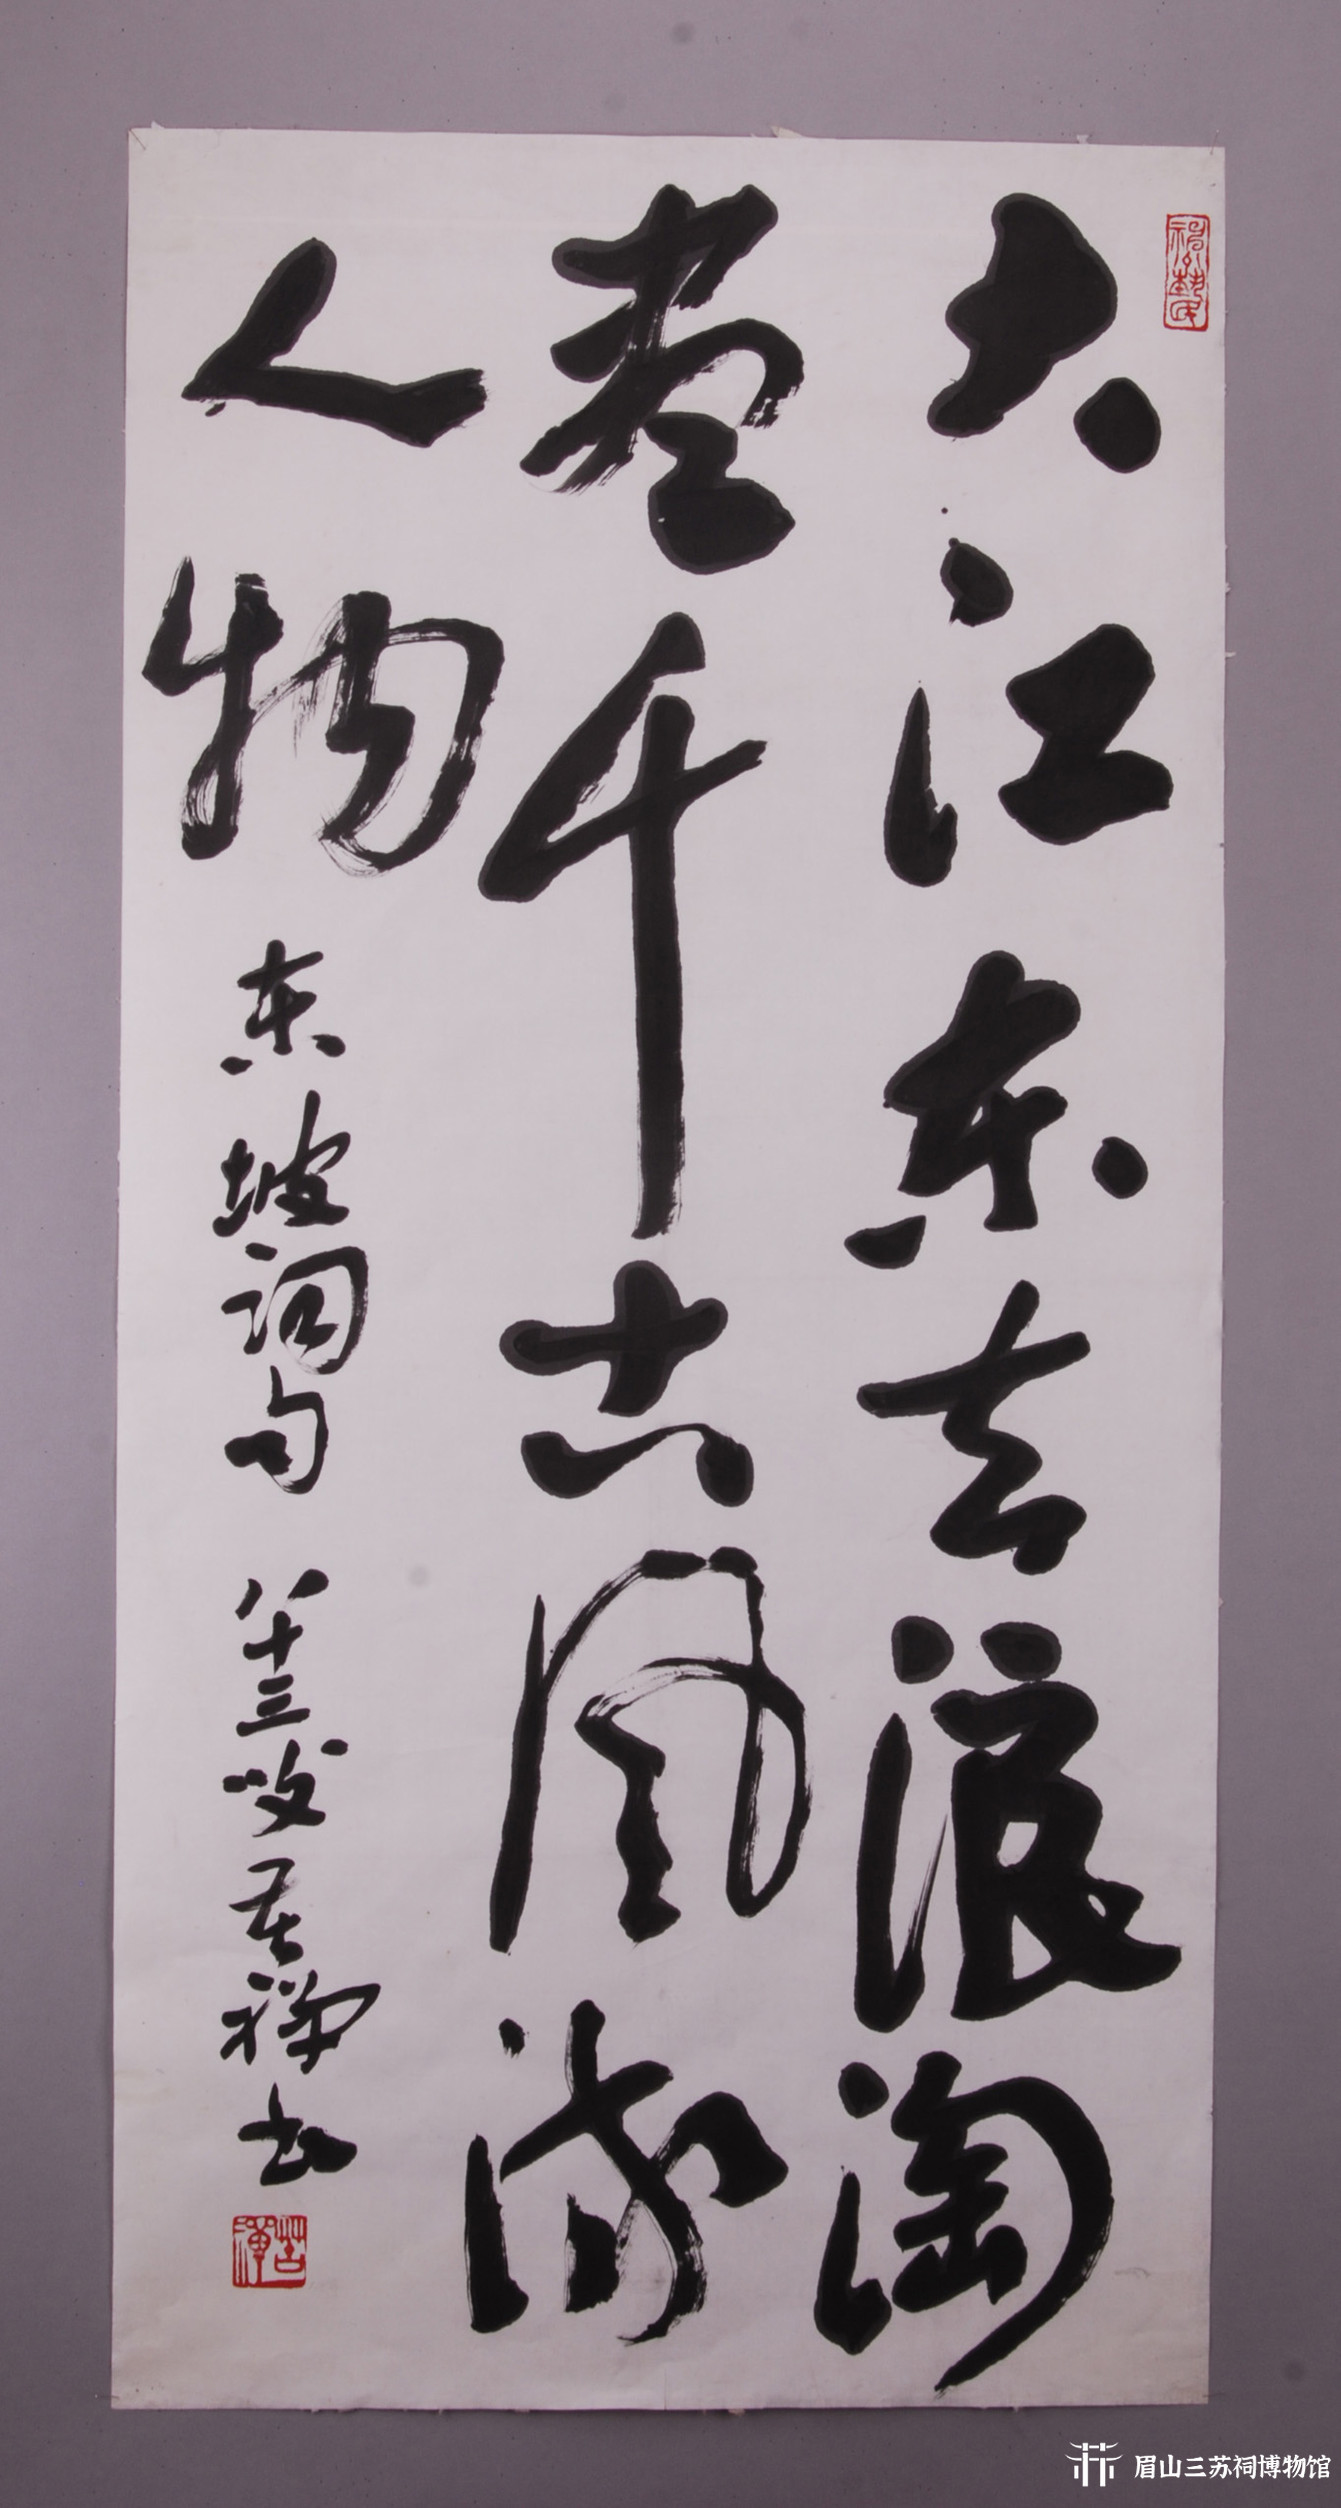 大江东去浪淘
尽千古风流
人物
东坡词句 八十三叟苦禅书
苦禅
眉山三苏祠博物馆